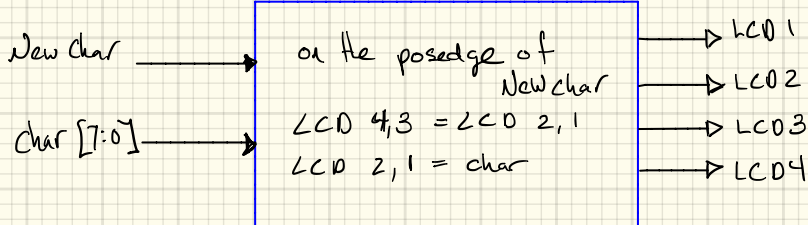 New Char
char [7:0]
on the posedge of
New char
LCD 4,3 = LCD 2,1
LCD 2,1 = char
LCD 1
LCD 2
LCD 3
LCD 4